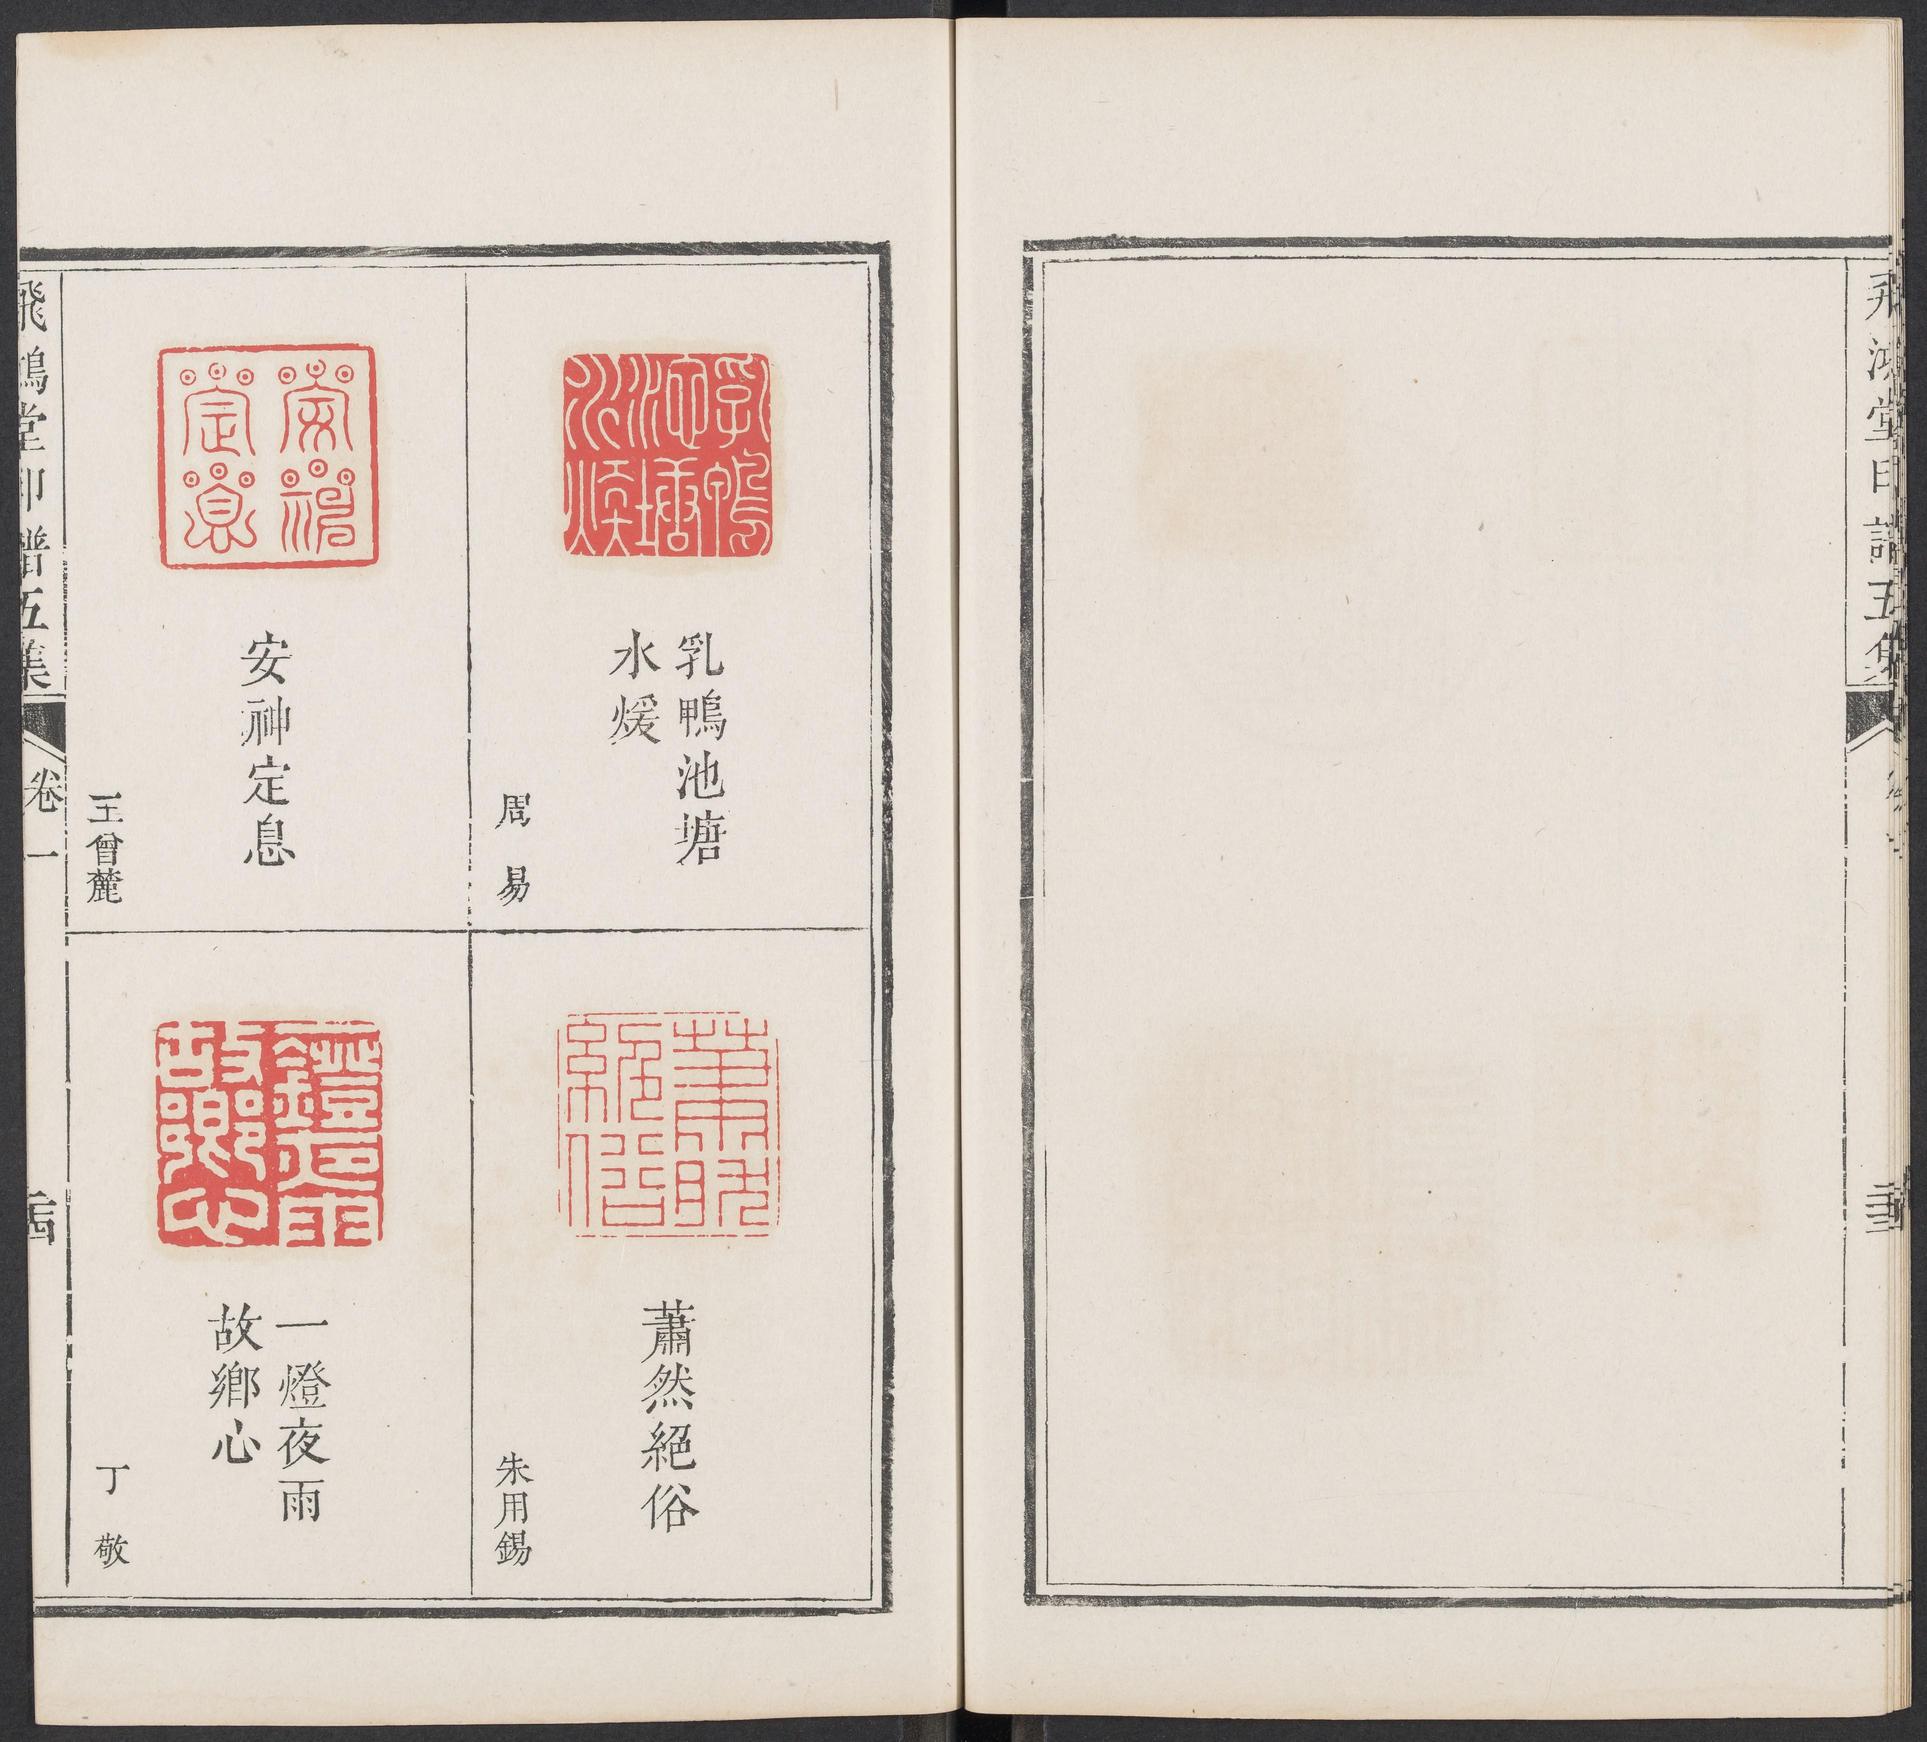 飛鴻堂印譜五集
乳鴨池塘
水煖
周易
蕭然絕俗
朱用錫
安神定息
王曾麓
一燈夜雨
故鄉心
丁敬
飛鴻堂印譜五集
卷一